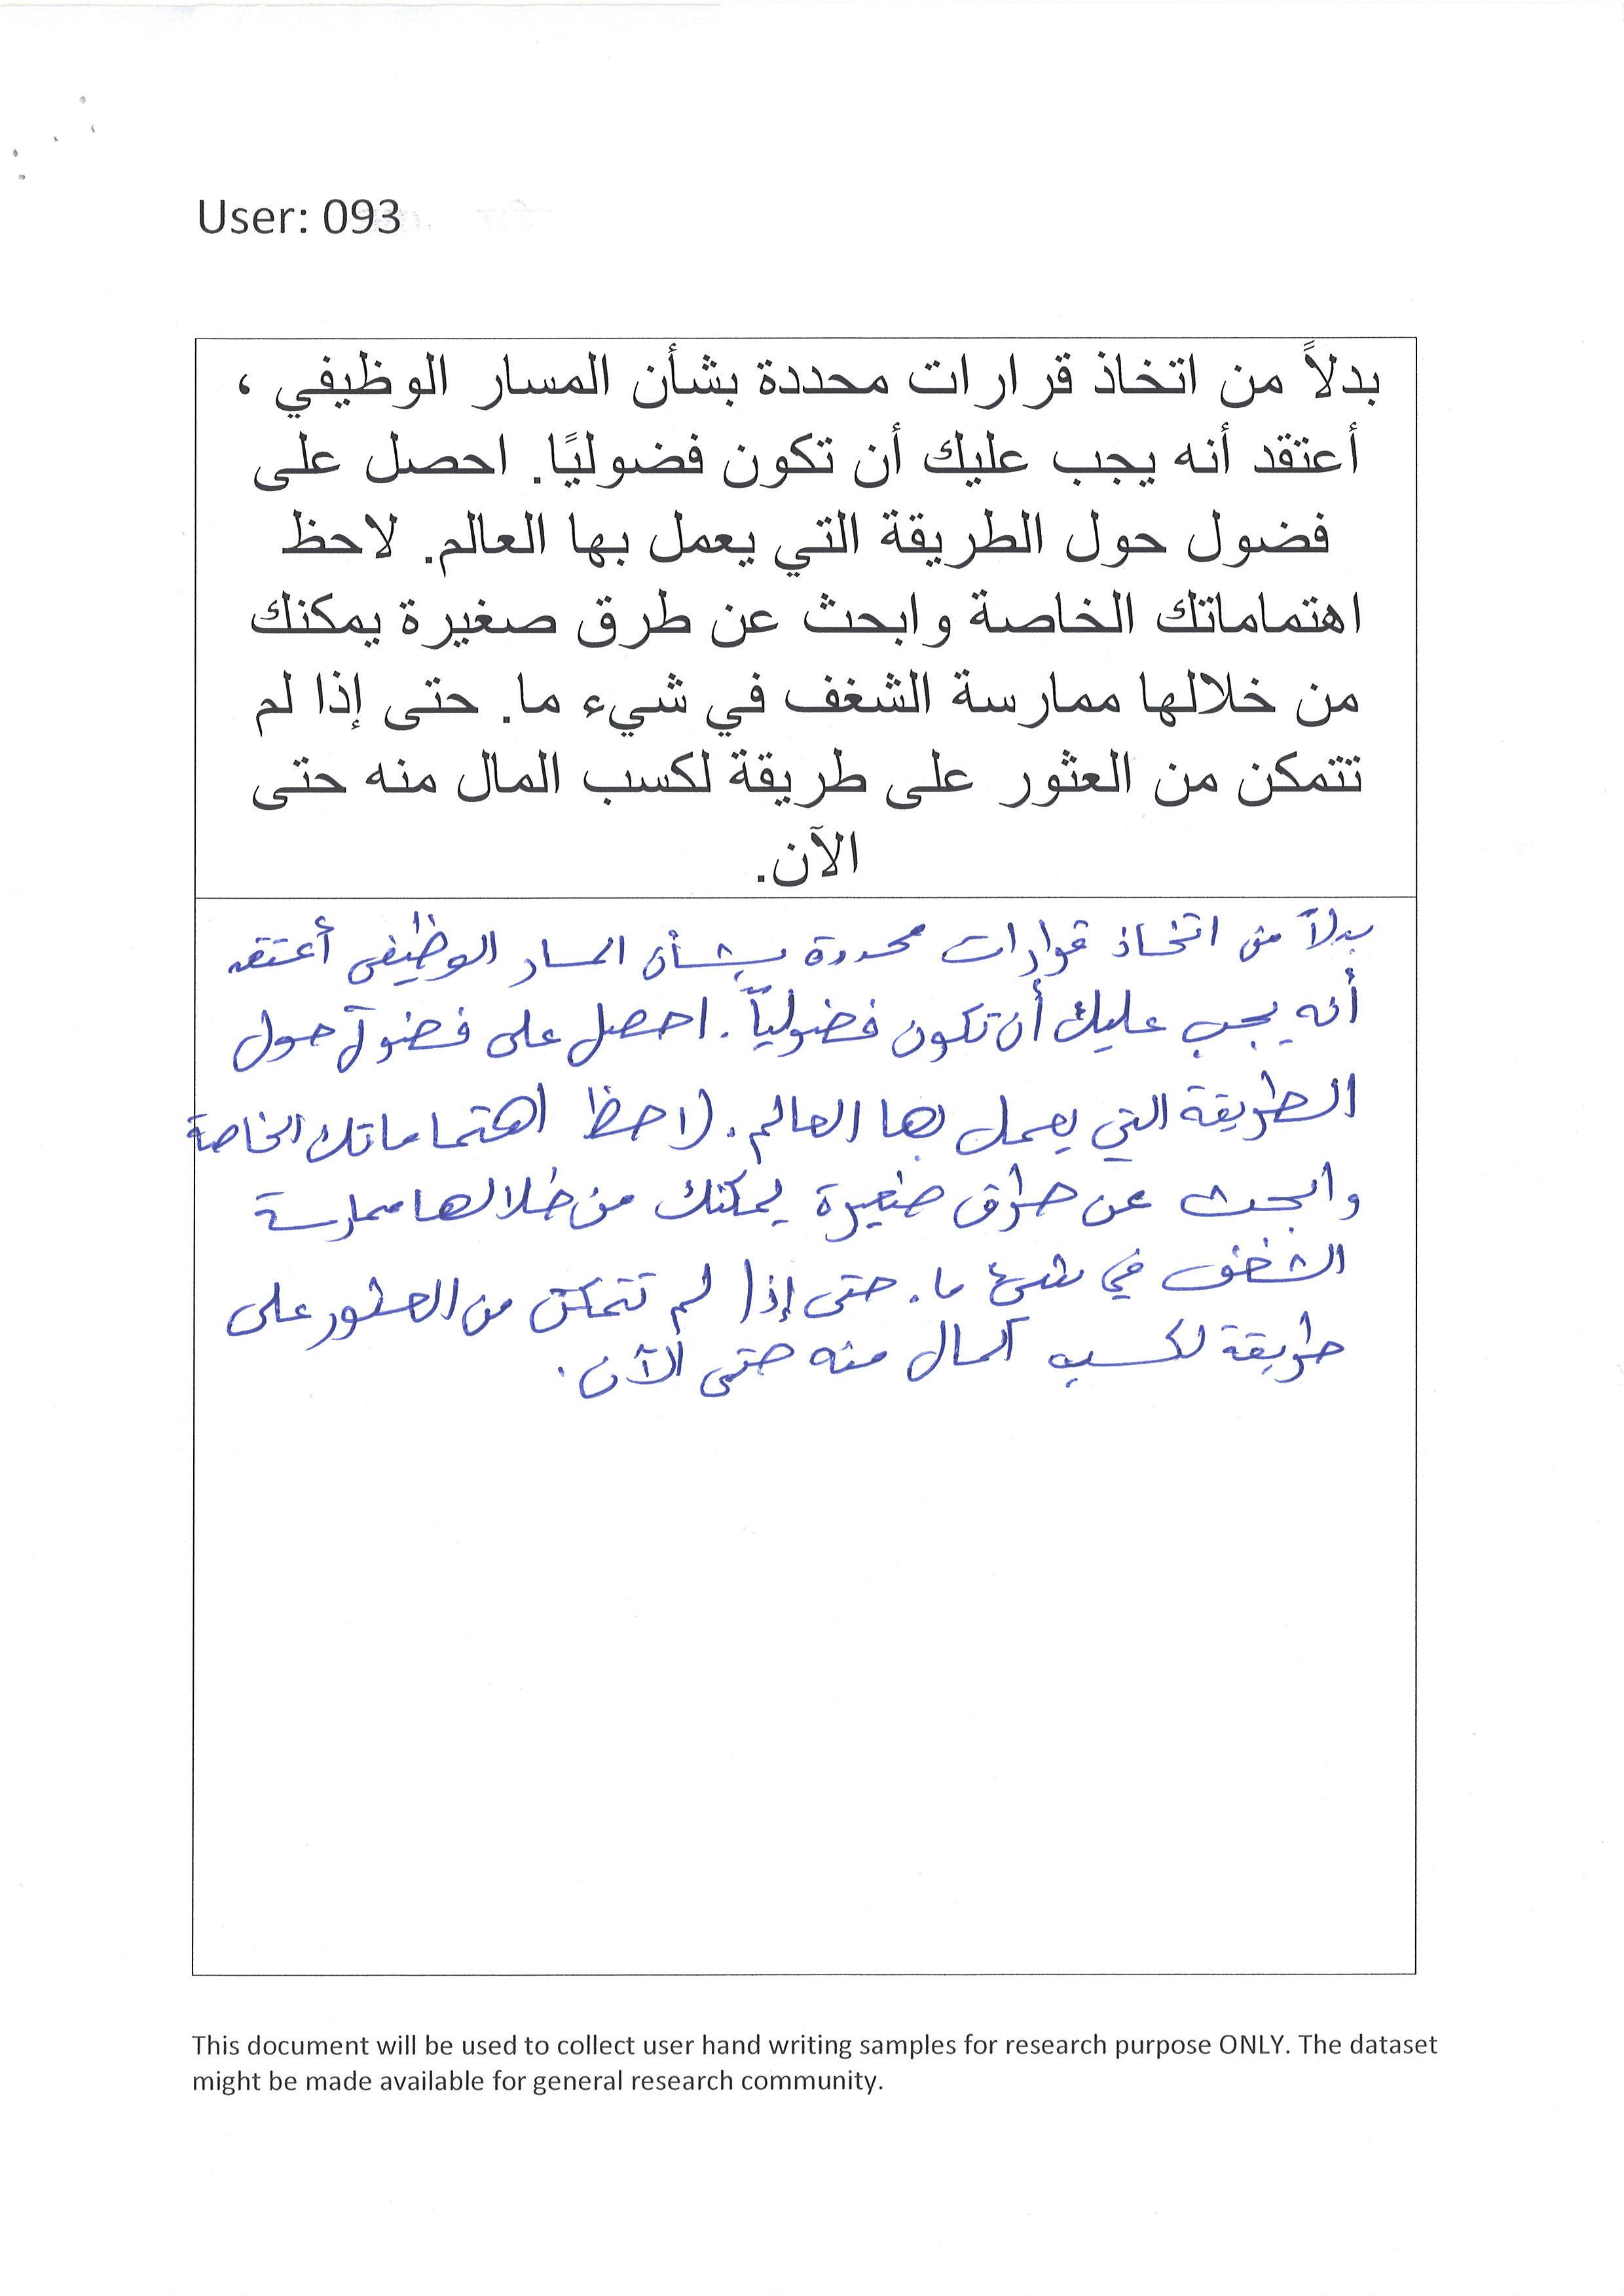 User: 093
بدلاً من اتخاذ قرارات محددة بشأن المسار الوظيفي ،
أعتقد أنه يجب عليك أن تكون فضوليًا. احصل على
فضول حول الطريقة التي يعمل بها العالم. لاحظ
اهتماماتك الخاصة وابحث عن طرق صغيرة يمكنك
من خلالها ممارسة الشغف في شيء ما. حتى إذا لم
تتمكن من العثور على طريقة لكسب المال منه حتى
الآن.
بدلاً من اتخاذ قرارات محددة بشأن المسار الوظيفي أعتقد
أنه يجب عليك أن تكون فضولياً. احصل على فضول حول
الطريقة التي يعمل بها العالم. لاحظ اهتماماتك الخاصة
وابحث عن طرق صغيرة يمكنك من خلالها ممارسة
الشغف في شيء ما. حتى إذا لم تتمكن من العثور على
طريقة لكسب المال منه حتى الآن.
This document will be used to collect user hand writing samples for research purpose ONLY. The dataset
might be made available for general research community.